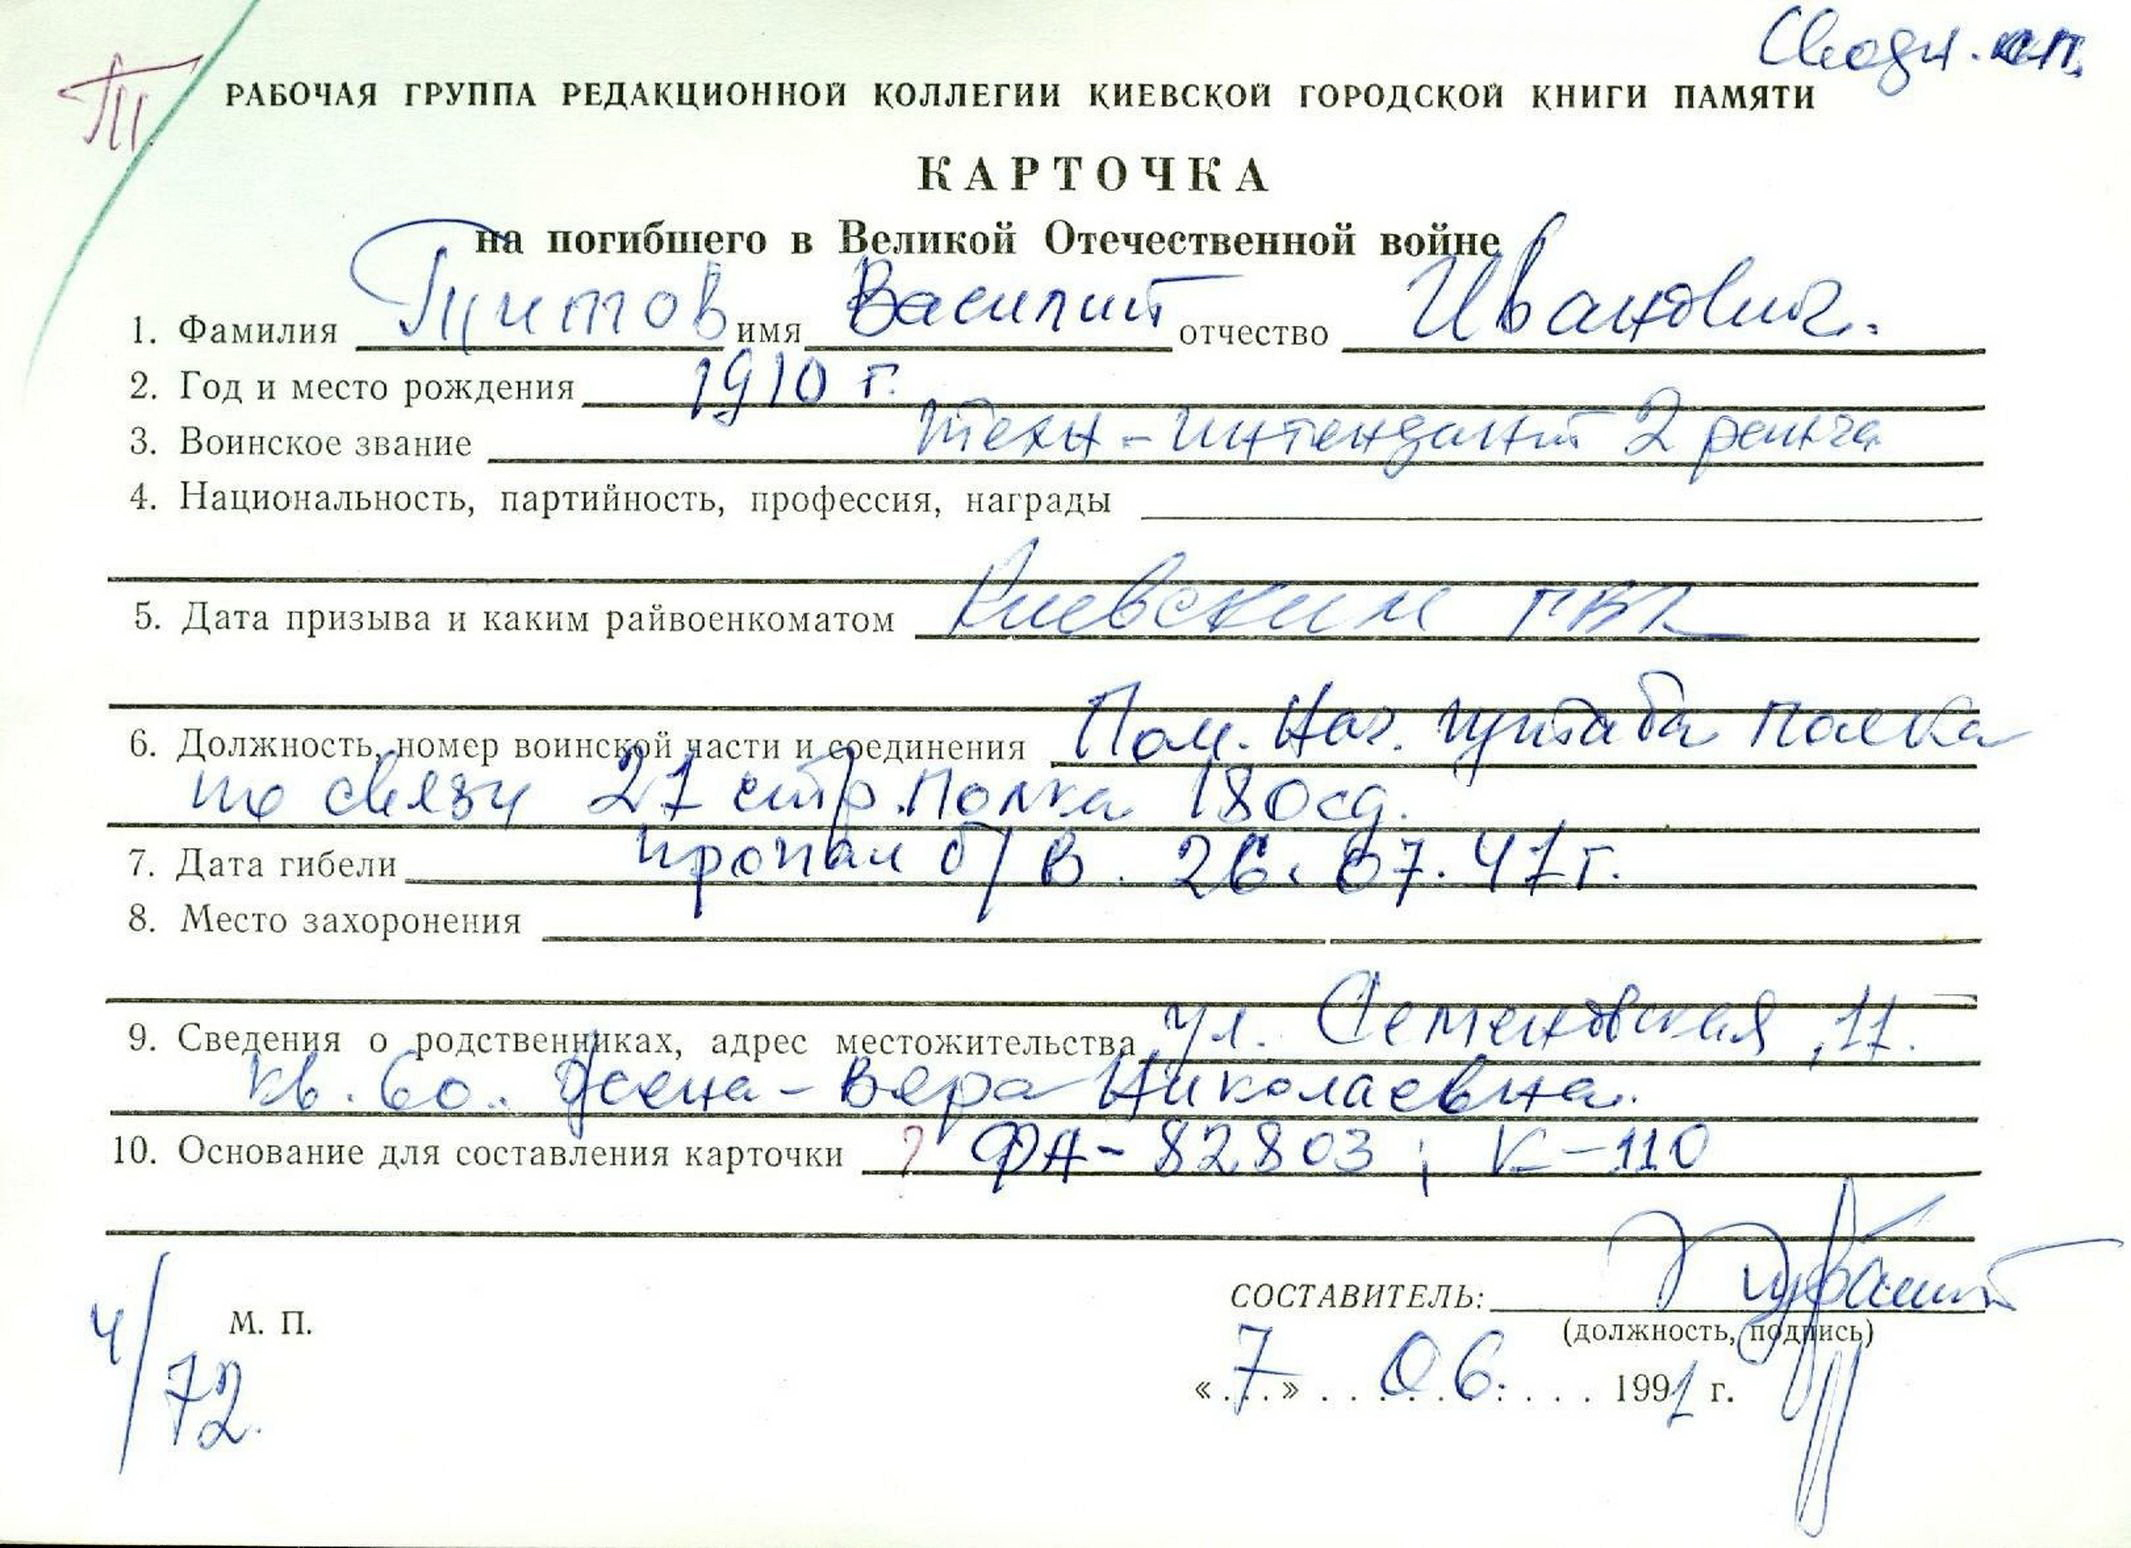 Сводн. к.п.
Т
РАБОЧАЯ ГРУППА РЕДАКЦИОННОЙ КОЛЛЕГИИ КИЕВСКОЙ ГОРОДСКОЙ КНИГИ ПАМЯТИ
КАРТОЧКА
на погибшего в Великой Отечественной войне
1. Фамилия Титов имя Василий отчество Иванович.
2. Год и место рождения 1910 г.
3. Воинское звание Техн-интендант 2 ранга
4. Национальность, партийность, профессия, награды
5. Дата призыва и каким райвоенкоматом Киевским ГВК
6. Должность, номер воинской части и соединения Пом. Нач. штаба полка
по связи 21 стр. полка 180сд.
7. Дата гибели пропал б/в. 26.07.41г.
8. Место захоронения
9. Сведения о родственниках, адрес местожительства ул. Семеновская, 11.
кв. 60. Жена - Вера Николаевна.
10. Основание для составления карточки ? ФА-82803; К-110
СОСТАВИТЕЛЬ:
(должность, подпись)
4/72.
М. П.
«7» 06. 1991 г.